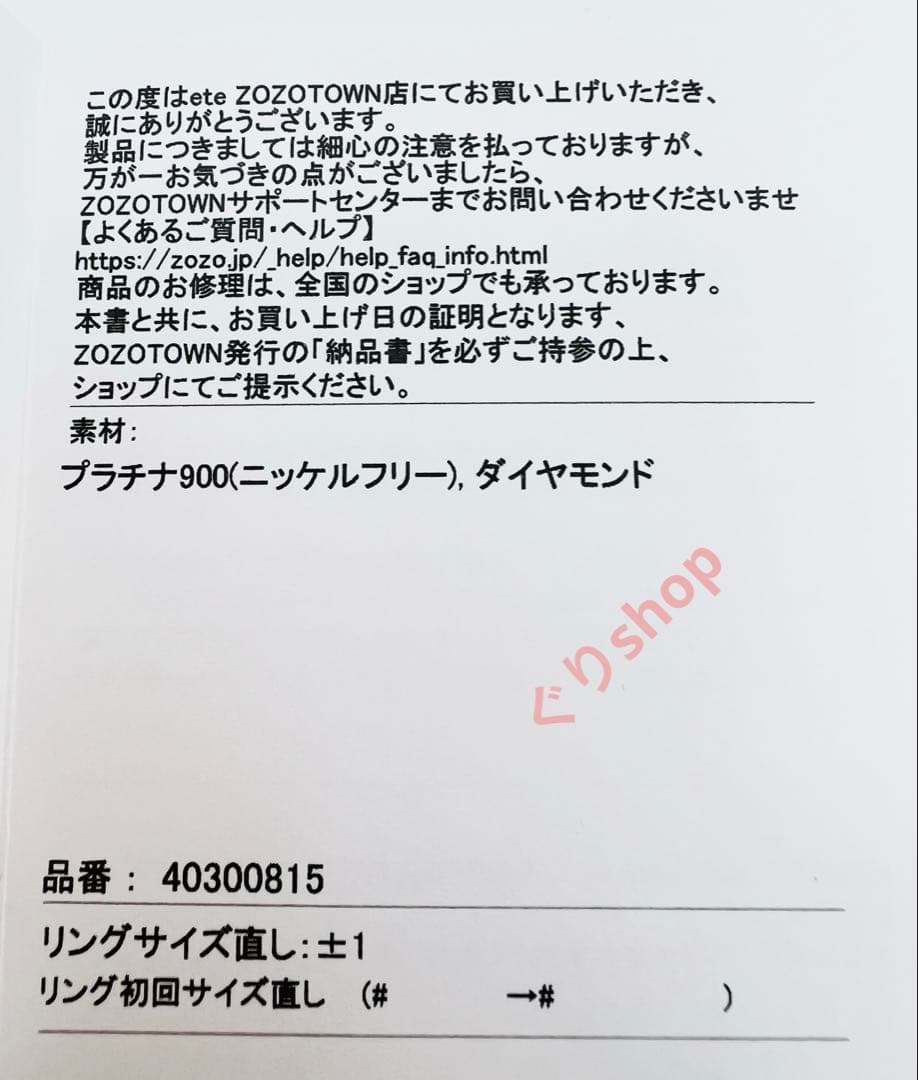 この度はete ZOZOTOWN店にてお買い上げいただき、
誠にありがとうございます。
製品につきましては細心の注意を払っておりますが、
万が一お気づきの点がございましたら、
ZOZOTOWNサポートセンターまでお問い合わせくださいませ
【よくあるご質問・ヘルプ】
https://zozo.jp/_help/help_faq_info.html
商品のお修理は、全国のショップでも承っております。
本書と共に、お買い上げ日の証明となります、
ZOZOTOWN発行の「納品書」を必ずご持参の上、
ショップにてご提示ください。
素材:
プラチナ900(ニッケルフリー), ダイヤモンド
ぐりshop
品番 : 40300815
リングサイズ直し:±1
リング初回サイズ直し (# →# )